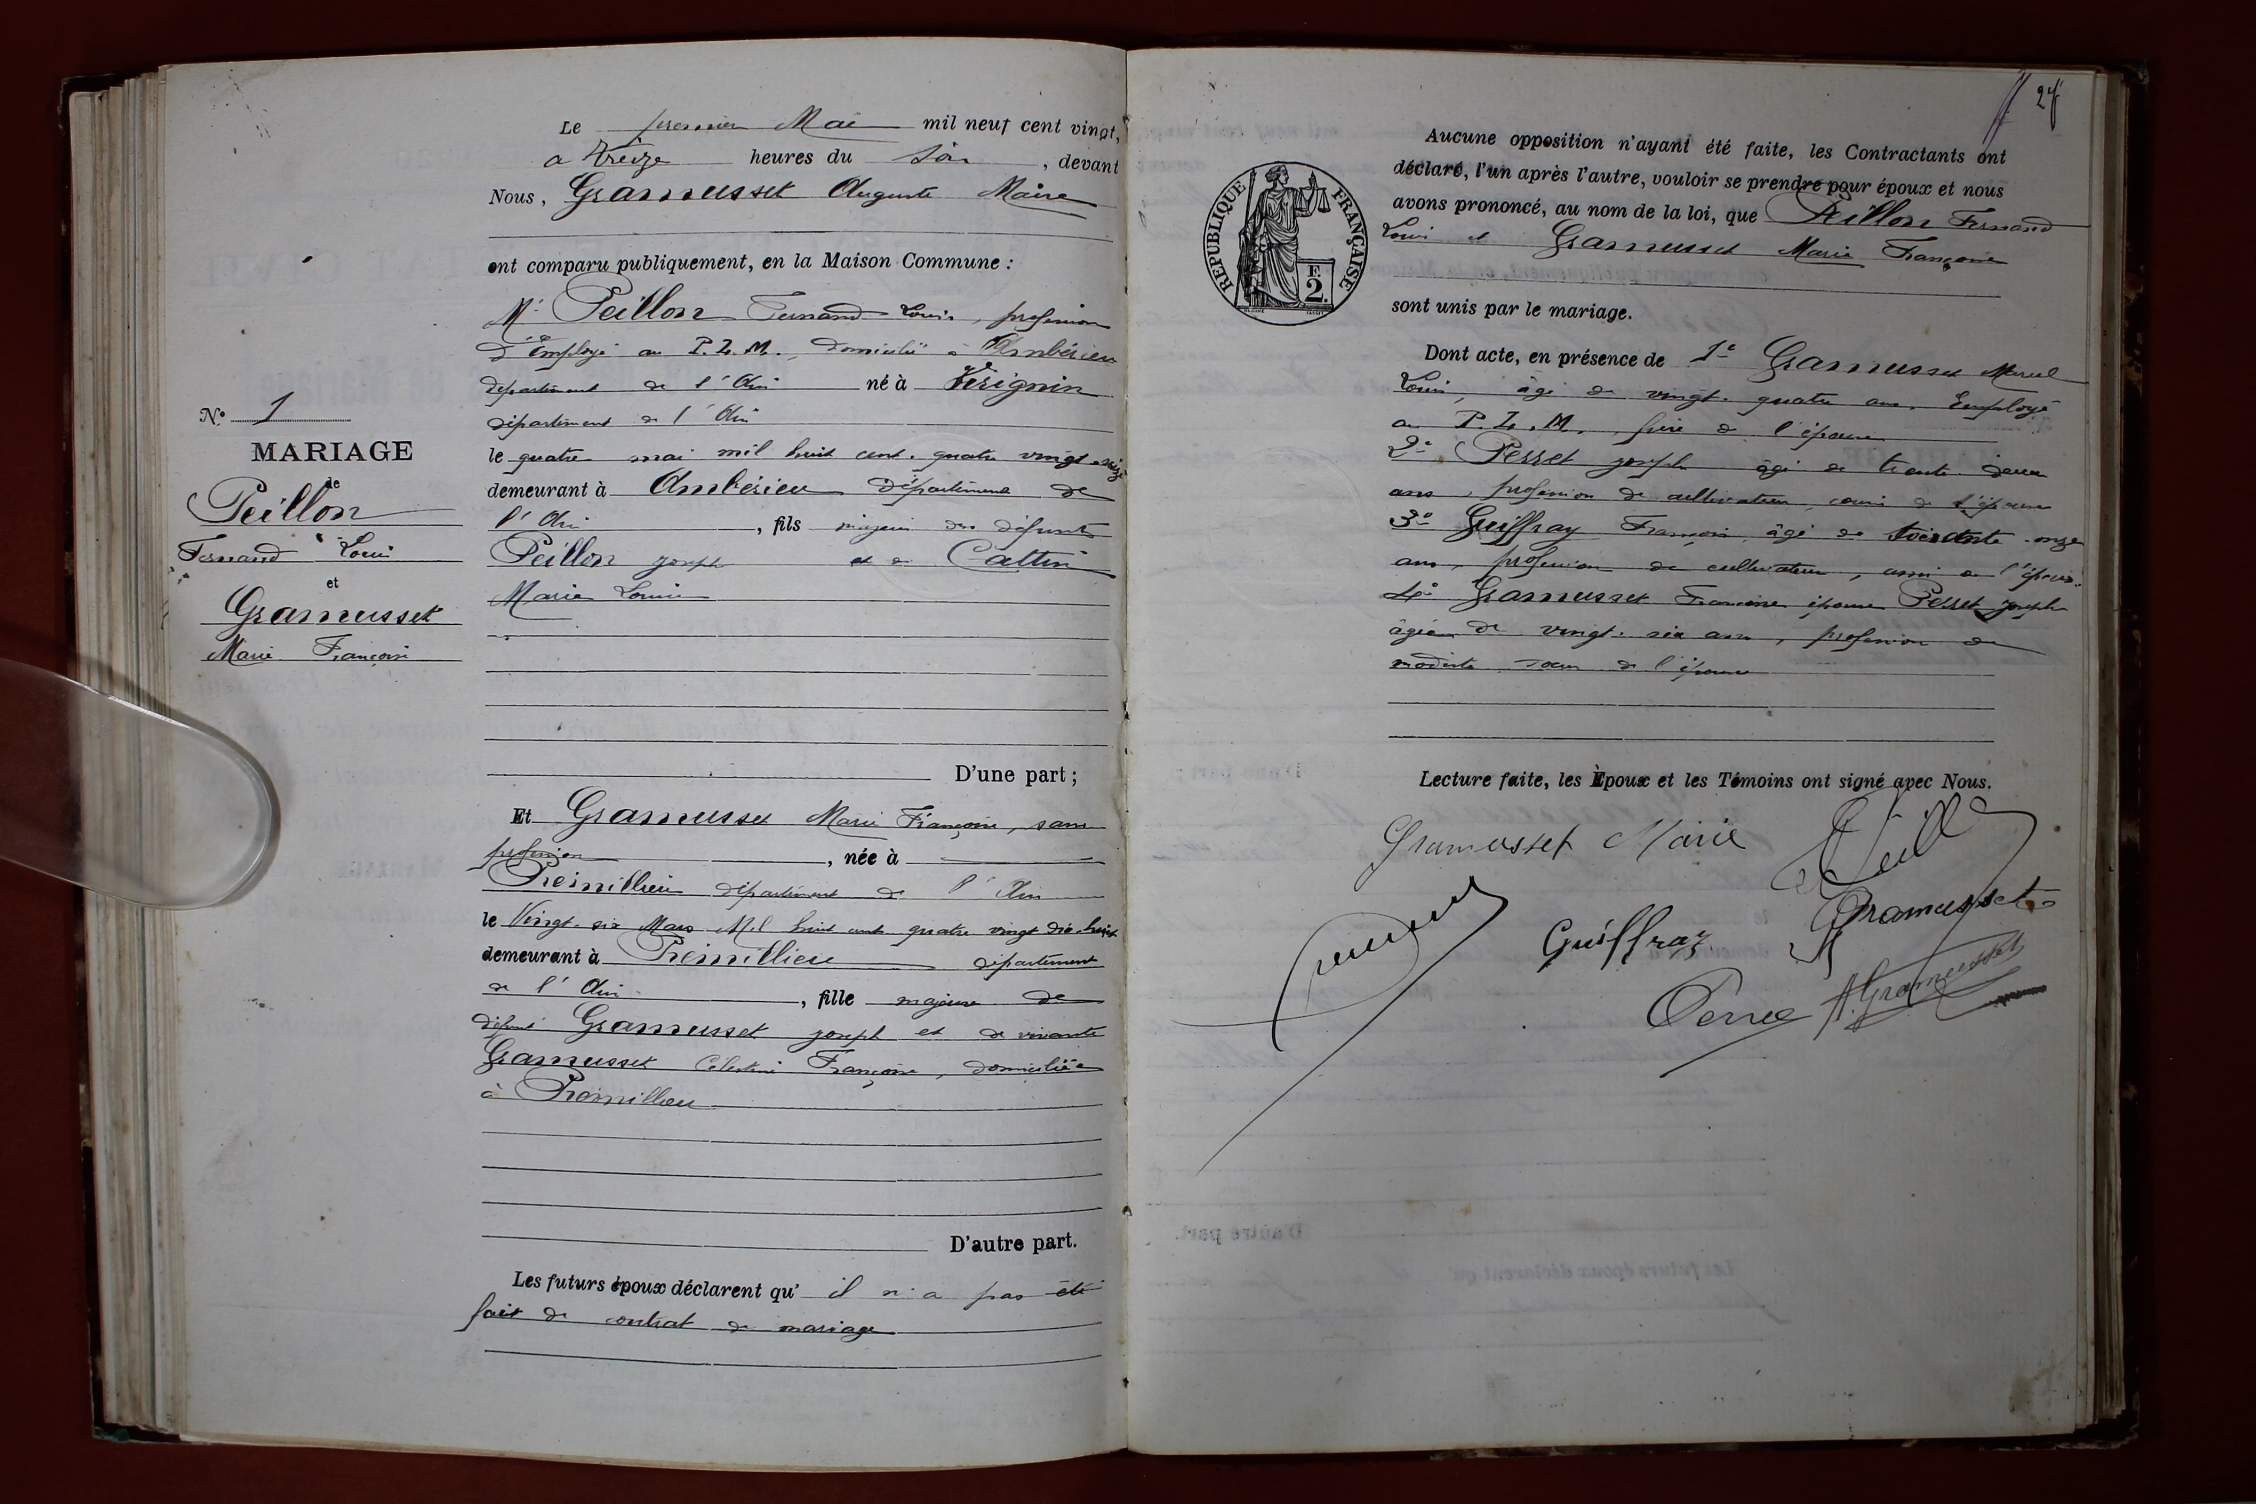 Le premier Mai mil neuf cent vingt,
a treize heures du soir, devant
Nous, Gramusset Auguste Maire
ont comparu publiquement, en la Maison Commune :
Mr Peillon Fernand Louis, profession
d'Employé au P.L.M., domicilié à Ambérieu
département de l'Ain né à Virignin
département de l'Ain
le quatre mai mil huit cent quatre vingt seize
demeurant à Ambérieu département de
l'Ain, fils majeur des défunts
Peillon joseph et de Cattin
Marie Louise
D'une part ;
Et Gramusset Marie Françoise, sans
profession, née à
Prémillieu département de l'Ain
le Vingt six Mars Mil huit cent quatre vingt dix huit
demeurant à Prémillieu département
de l'Ain, fille majeure de
défunt Gramusset joseph et de vivante
Gramusset Célestine Françoise, domiciliée
à Prémillieu
D'autre part.
Les futurs époux déclarent qu' il n'a pas été
fait de contrat de mariage
N° 1
MARIAGE
de
Peillon
Fernand Louis
et
Gramusset
Marie Françoise
27
RÉPUBLIQUE FRANÇAISE
F.
2.
Aucune opposition n'ayant été faite, les Contractants ont
déclaré, l'un après l'autre, vouloir se prendre pour époux et nous
avons prononcé, au nom de la loi, que Peillon Fernand
Louis et Gramusset Marie Françoise
sont unis par le mariage.
Dont acte, en présence de 1° Gramusset Marcel
Louis, âgé de vingt quatre ans, Employé
au P.L.M., frère de l'épouse
2° Perret joseph âgé de trente deux
ans, profession de cultivateur, de l'épouse
3° Guiffray François, âgé de soixante onze
ans, profession de cultivateur, ami de
4° Gramusset Françoise épouse Perret joseph
âgée de vingt six ans, profession de
modiste soeur de l'épouse
Lecture faite, les Époux et les Témoins ont signé avec Nous.
Gramusset Marie
Peillon
Gramusset
Guiffray
Perret
A. Gramusset